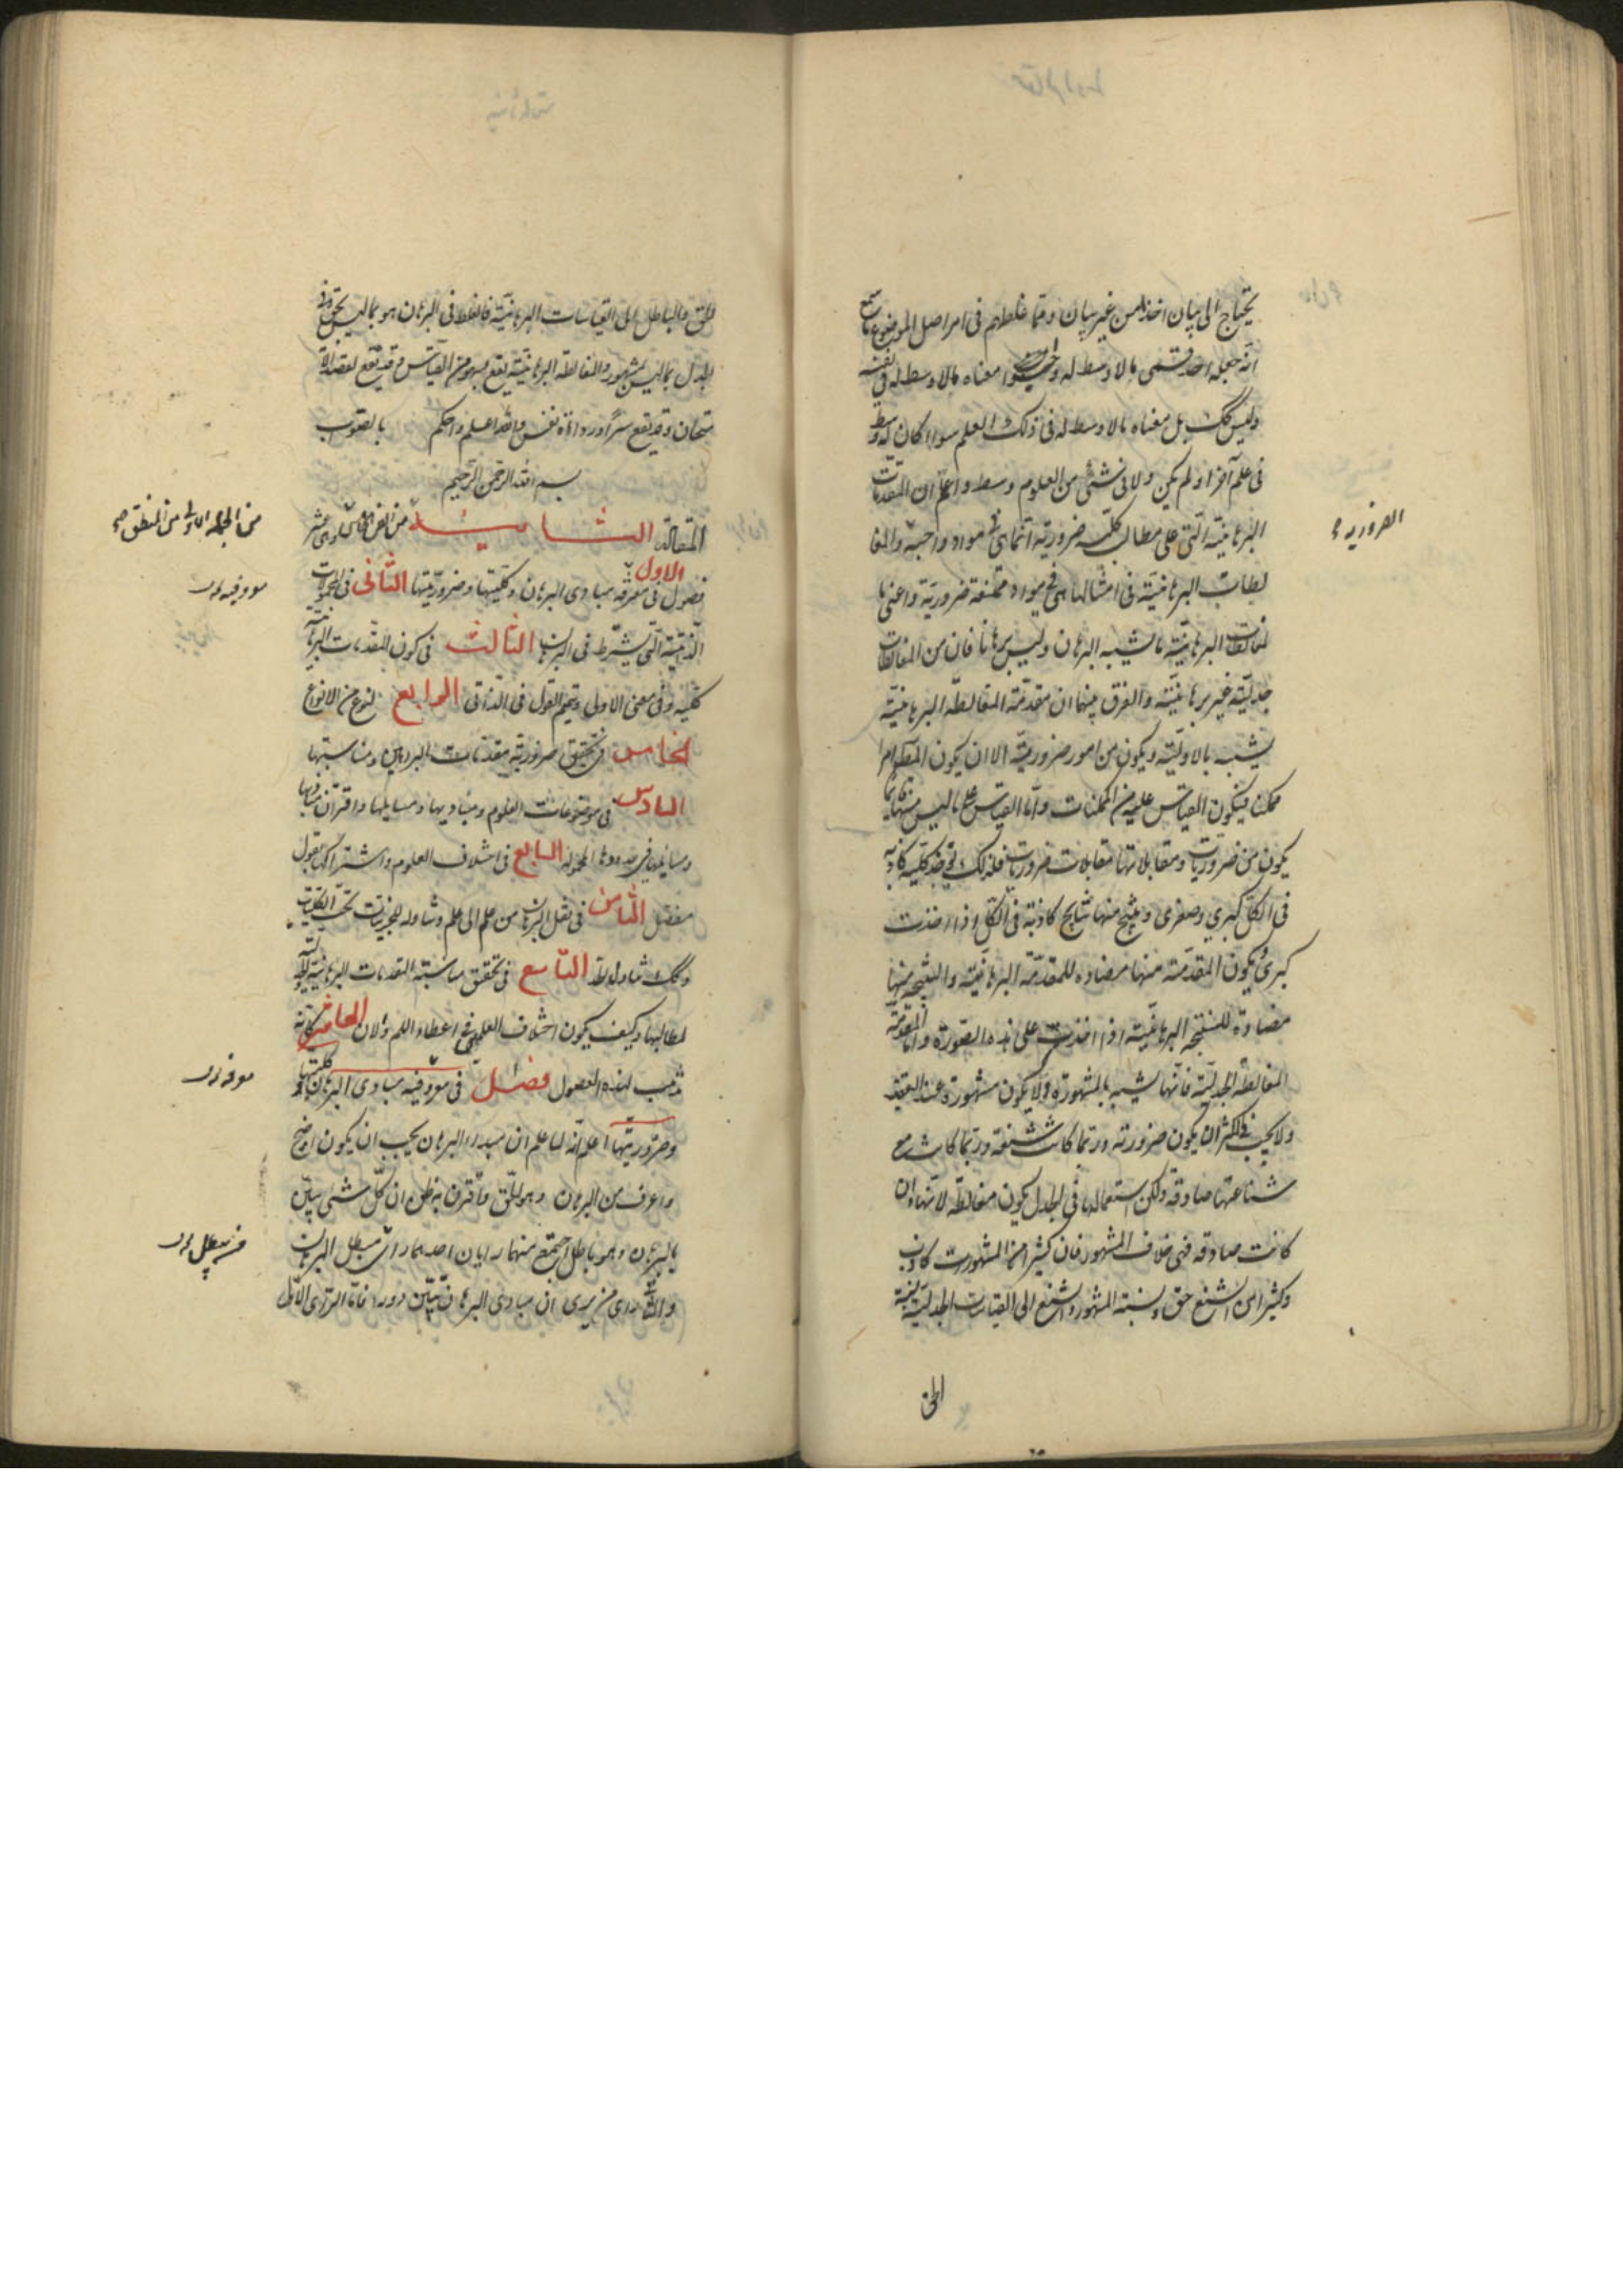 يحتاج الى بيان اخذا من غير بيان ومما غلطهم فى امر اصل الموضوع ما سمع
انه جعله احد قسمى ما لا وسط له وحسبوا معناه ما لا وسط له فى نفسه
وليس كك بل معناه ما لا وسط له فى ذلك العلم سواء كان له وسط
فى علم آخر او لم يكن ولا فى شئ من العلوم وسط واعلم ان المقدمات
البرهانية التى على مطالب كلية ضرورية انما هى فى مواد واجبة والمغا
لطات البرهانية فى امثالها هى فى مواد ممتنعة ضرورية واعنى با
لمغالطات البرهانية ما يشبه البرهان وليس برهانا فان من المغالطات
جدلية غير برهانية والفرق بينهما ان مقدمة المغالطة البرهانية
يشبه بالاولية ويكون من امور ضرورية الا ان يكون المتكلم امرا
ممكنا فيكون القياس عليه من الممكنات واما القياس على ما ليس منها فانما
يكون من ضروريات ومقابلاتها مقابلات ضروريات فلذلك توخذ كلية كاذبة
فى الكل كبرى وصغرى وينتج منها نتايج كاذبة فى الكل اذا اخذت
كبرى ويكون المقدمة منها مضادة للمقدمة البرهانية والنتيجة منها
مضادة للنتيجة البرهانية اذا اخذت على هذه الصورة واما المقدمة
المغالطة الجدلية فانها يشبه بالمشهورة ولا يكون مشهورة عند التعقيد
ولا يجب فى الاكثر ان يكون ضرورية وربما كانت شنعة وربما كانت مع
شناعتها صادقة ولكن استعمالها فى الجدل يكون مغالطة لانها وان
كانت صادقة فهى خلاف المشهور فان كثيرا من المشهورات كاذب
وكثيرا من الشنع حق ونسبة المشهور والشنع الى القياسات الجدلية نسبة
الحق
الضرورية
الحق والباطل الى القياسات البرهانية فالغلط فى البرهان هو بما ليس بحق وفى
الجدل بما ليس بمشهور والمغالطة البرهانية يقع بسهو من القايس وقد تقع لقصد الا
متحان وقد يقع شرا ورداءة نفس والله اعلم واحكم بالصواب
بسم الله الرحمن الرحيم
المقالة الثانية من الفن الخامس وهى عشر
فصول الاول فى معرفة مبادى البرهان وكليتها وضروريتها الثانى فى المحمولات
الذاتية التى يشترط فى البرهان الثالث فى كون المقدمات البرهانية
كلية وفى معنى الاولى وتتميم القول فى الذاتى الرابع لنوع من الانواع
الخامس فى تحقيق ضرورية مقدمات البراهين ومناسبتها
السادس فى موضوعات العلوم ومباديها ومسايلها واقتران مباديها
ومسايلها فى حدودها المحمولة السابع فى اختلاف العلوم واشتراكها بقول
مفصل الثامن فى نقل البرهان من علم الى علم وتناوله للجزئيات تحت الكليات
وكك تناول الحد التاسع فى تحقيق مناسبة المقدمات البرهانية
لمطالبها وكيف يكون اختلاف العلمين فى اعطاء اللم والان العاشر
لهذه الفصول فصل فى معرفة مبادى البرهان وكليتها
وضروريتها اعلم انه لما علم ان مبدا البرهان يجب ان يكون اوضح
واعرف من البرهان وهو الحق وما قرن به ظن ان كل شئ يبين
بالبرهان وهو باطل اجتمع منهما رايان احدهما راى مبطل البرهان
والثانى راى من يرى ان مبادى البرهان يتبين دورا فاما الراى الاول
من الجملة الاولى من المنطق صح